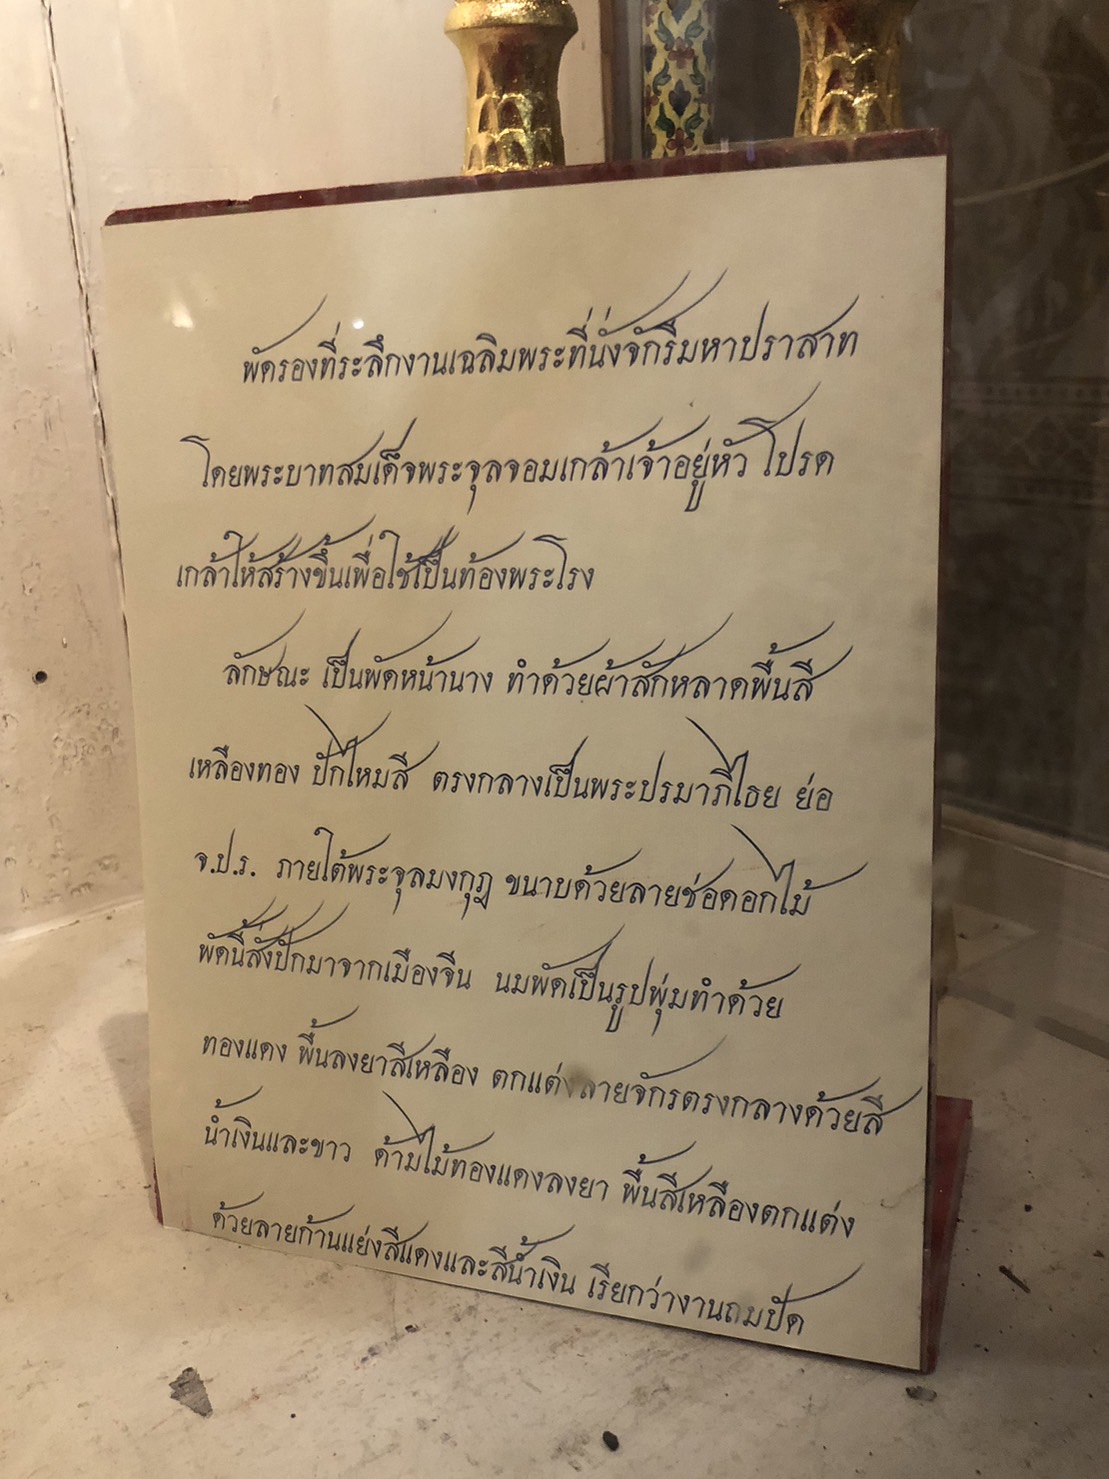 พัดรองที่ระลึกงานเฉลิมพระที่นั่งจักรีมหาปราสาท
โดยพระบาทสมเด็จพระจุลจอมเกล้าเจ้าอยู่หัว โปรด
เกล้าให้สร้างขึ้นเพื่อใช้เป็นท้องพระโรง
ลักษณะ เป็นพัดหน้านาง ทำด้วยผ้าสักหลาดพื้นสี
เหลืองทอง ปักไหมสี ตรงกลางเป็นพระปรมาภิไธย ย่อ
จ.ป.ร. ภายใต้พระจุลมงกุฎ ขนาบด้วยลายช่อดอกไม้
พัดนี้สั่งปักมาจากเมืองจีน นมพัดเป็นรูปพุ่มทำด้วย
ทองแดง พื้นลงยาสีเหลือง ตกแต่งลายจักรตรงกลางด้วยสี
น้ำเงินและขาว ด้ามไม้ทองแดงลงยา พื้นสีเหลืองตกแต่ง
ด้วยลายก้านแย่งสีแดงและสีน้ำเงิน เรียกว่างานถมปัด